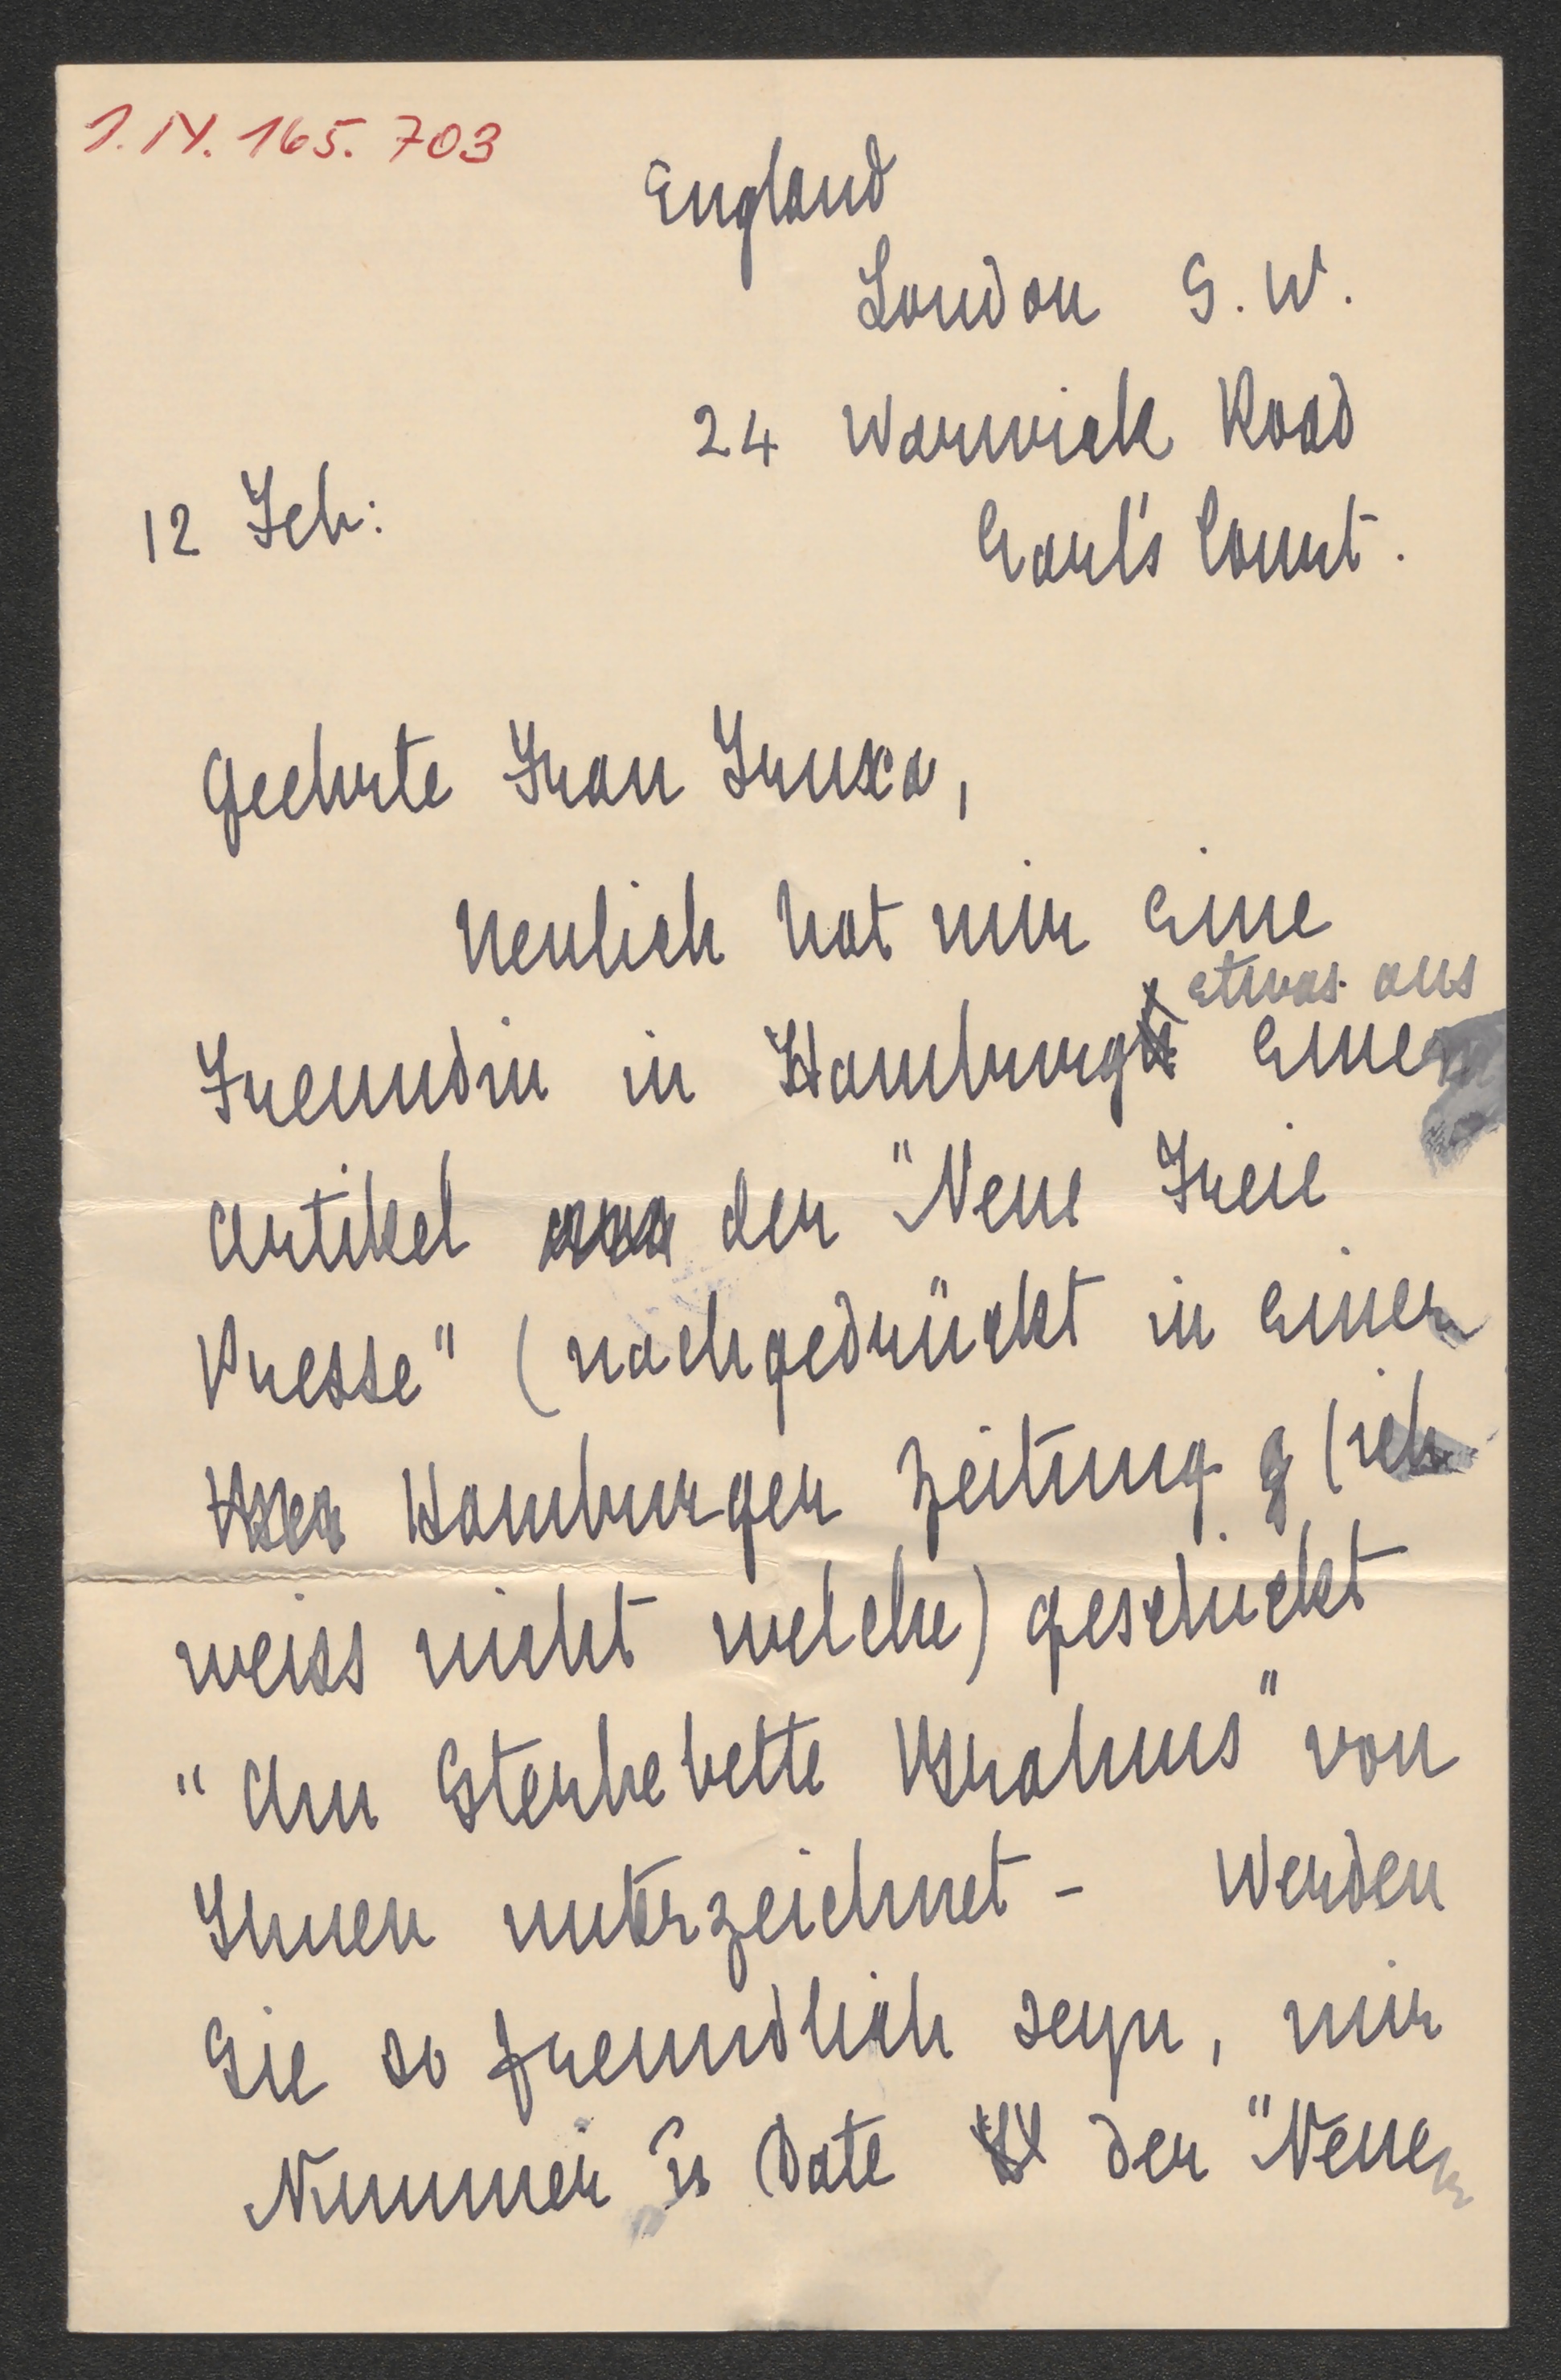 I.N. 165.703
England
London S.W.
24 Warwick Road
12 Feb:
Earl's Court.
Geehrte Frau Truxa,
Neulich hat mir eine
etwas aus
Freundin in Hamburg einem
Artikel der "Neue Freie
Presse" (nachgedrückt in einer
Hamburger Zeitung (ich
weiss nicht welche) geschickt
"Am Sterbebette Brahms" von
Ihnen unterzeichnet - Werden
Sie so freundlich seyn, mir
Nummer u Date der "Neuen